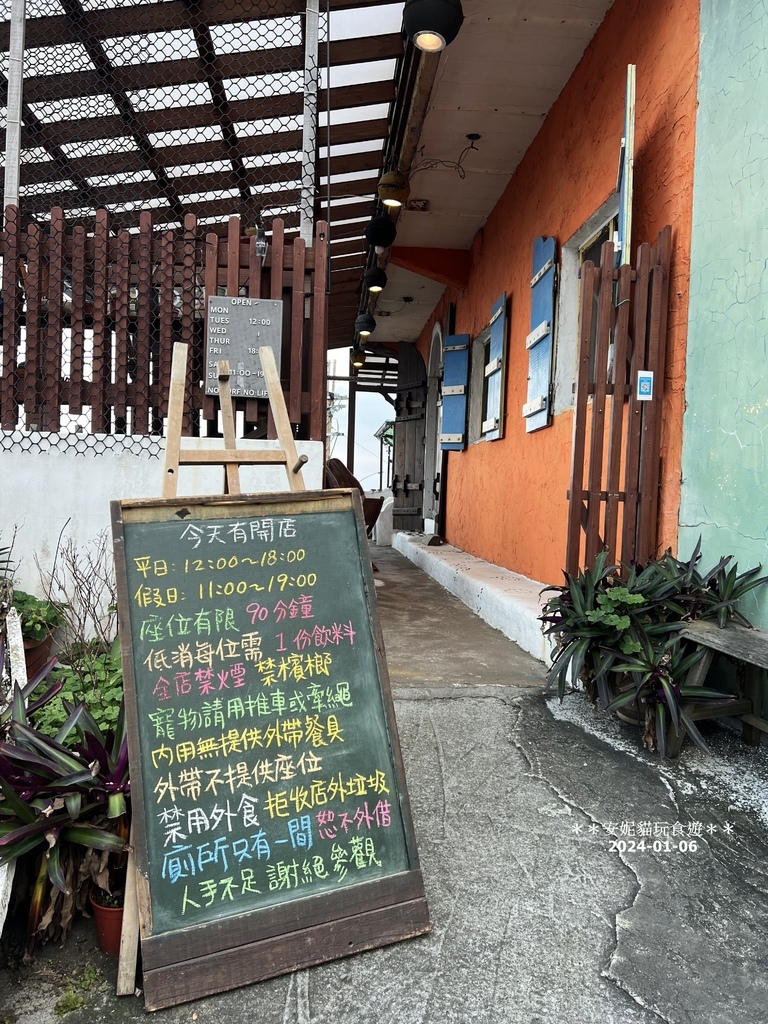 OPEN
MON
TUES 12:00
WED
THUR
FRI 18:
SA
SU 11:00~19
NO SURF NO LIFE
今天有開店
平日:12:00~18:00
假日:11:00~19:00
座位有限 90分鐘
低消每位需 1份飲料
全店禁煙 禁檳榔
寵物請用推車或牽繩
內用無提供外帶餐具
外帶不提供座位
禁用外食 拒收店外垃圾
廁所只有一間 恕不外借
人手不足 謝絕參觀
**安妮貓玩食遊**
2024-01-06